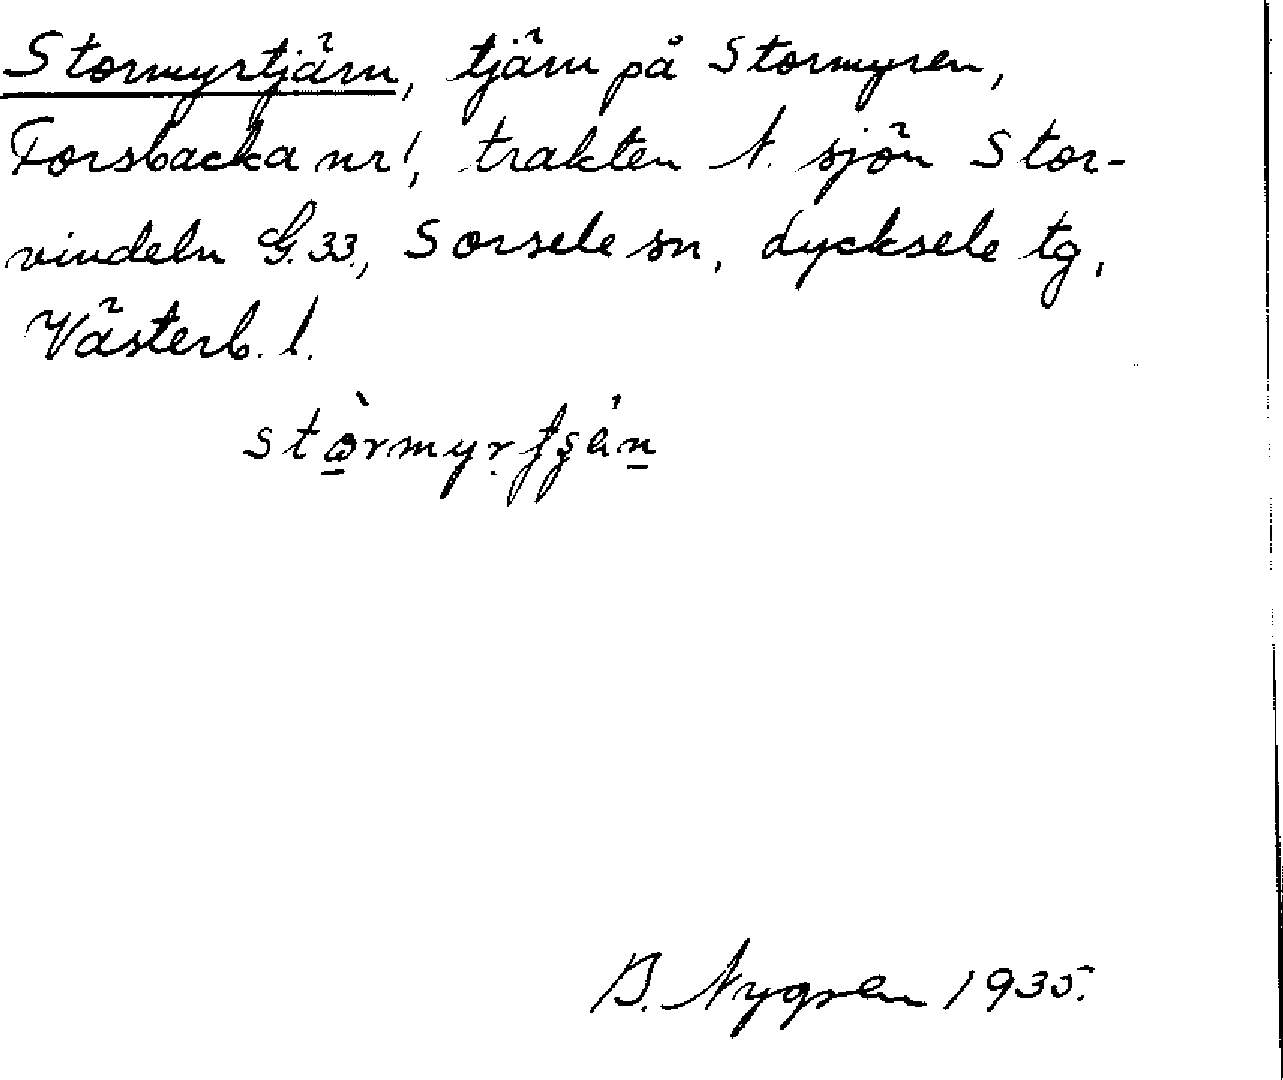 Stormyrtjärn, tjärn på Stormyren,
Forsbacka nr 1, trakten N. sjön Stor-
vindeln G.33, Sorsele sn, Lycksele tg,
Västerb. l.
stòrmyrtʂán
B. Nygren 1935.